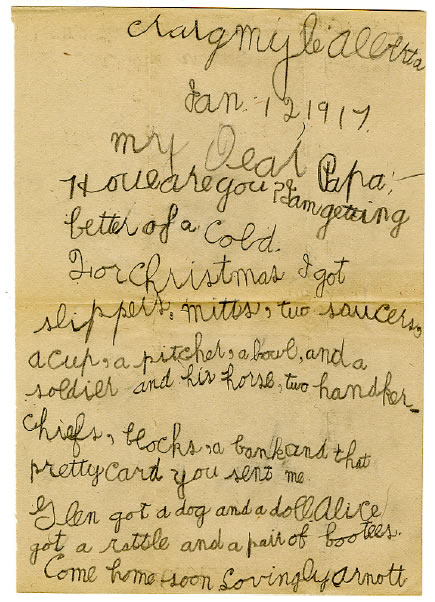 Craigmyle Alberta
Jan. 12, 1917.
My Dear Papa;-
How are you? I am getting
better of a Cold.
For Christmas I got
slippers, mitts, two saucers,
a cup, a pitcher, a bowl, and a
soldier and his horse, two handker-
chiefs, blocks, a bank and that
pretty card you sent me
Glen got a dog and a doll Alice
got a rattle and a pair of bootees.
Come home soon Lovingly Arnott